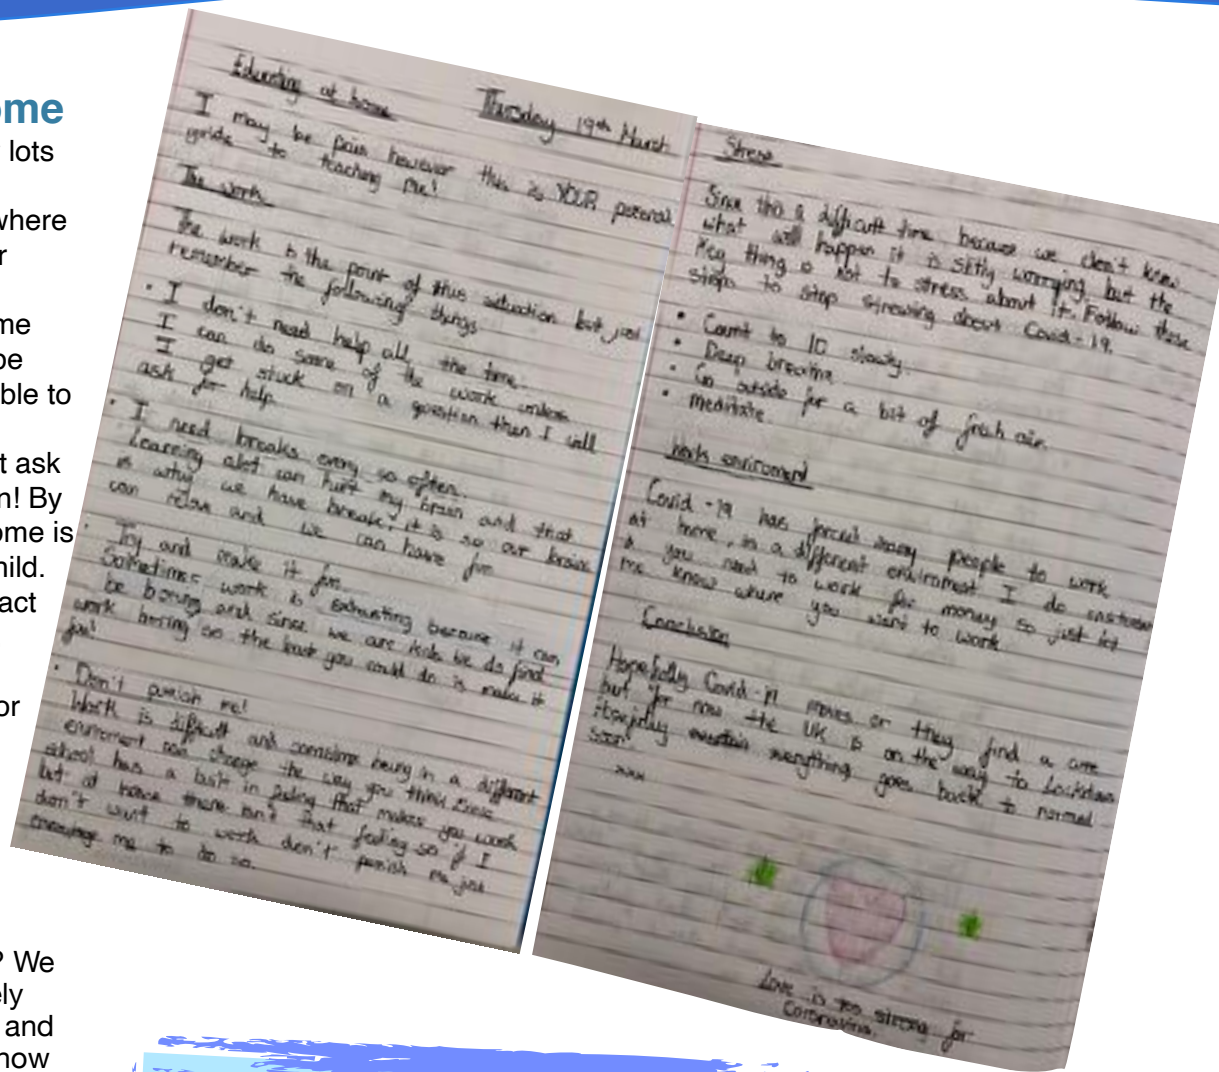 ome
lots
where
r
me
be
ble to
t ask
n! By
ome is
hild.
act
or
? We
ely
and
now
Educating at home
Thursday 19th March
I may be however this is YOUR personal
guide to teaching me!
The work
The work is the point of this situation but just
remember the following things
• I don't need help all the time.
I can do some of the work unless
I get stuck on a question then I will
ask for help.
• I need breaks every so often.
Learning alot can hurt my brain and that
is why we have breaks it is so our brains
can relax and we can have fun
• Try and make it fun.
Sometimes work is exhausting because it can
be boring and since we are kids we do find
work boring so the least you could do is make it
fun!
• Don't punish me!
Work is difficult and sometimes being in a different
enviroment can change the way you think
school has a feeling that makes you work
but at home there isn't that feeling so if I
don't want to work don't punish me just
encourage me to do so.
Stress
Since this a difficult time because we don't know
what will happen it is worrying but the
key thing is not to stress about it. Follow these
steps to stop about Covid-19.
• Count to 10 slowly.
• Deep breathe
• Go outside for a bit of fresh air.
• meditate
Work enviroment
Covid-19 has forced many people to work
at home, in a different enviroment I do
you need to work for money so just let
me know where you want to work.
Conclusion
Hopefully Covid-19 moves or they find a cure
but for now the UK is on the way to Lockdown
Hopefully everything goes back to normal
soon.
xxx
Love is too strong for
Coronavirus.